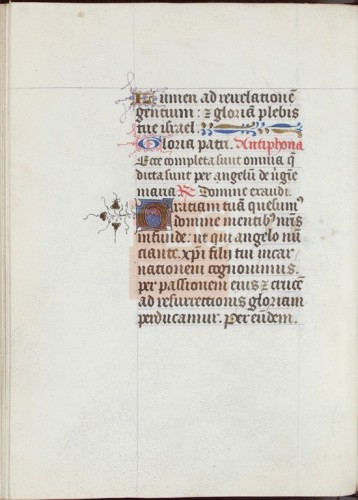 Lumen ad revelationē
gentium: ⁊ gloriā plebis
tue israel.
Gloria patri. Antiphona
Ecce completa sunt omnia q̄
dicta sunt per angelū de v̄gīe
maria. R Domine exaudi.
Gratiam tuā quesumꝰ
domine mentibꝰ nr̄is
infunde: ut qui angelo nū
ciante. xp̄i filij tui incar
nationem cognouimus.
per passionem eius ⁊ crucē
ad resurrectionis gloriam
perducamur. Per eūdem.